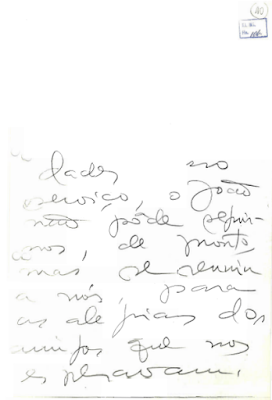 40
dades no
serviço, o João
não pôde seguir-
nos, de pronto
mas se reuniu
a nós, para
as alegrias dos
amigos que nos
esperavam.